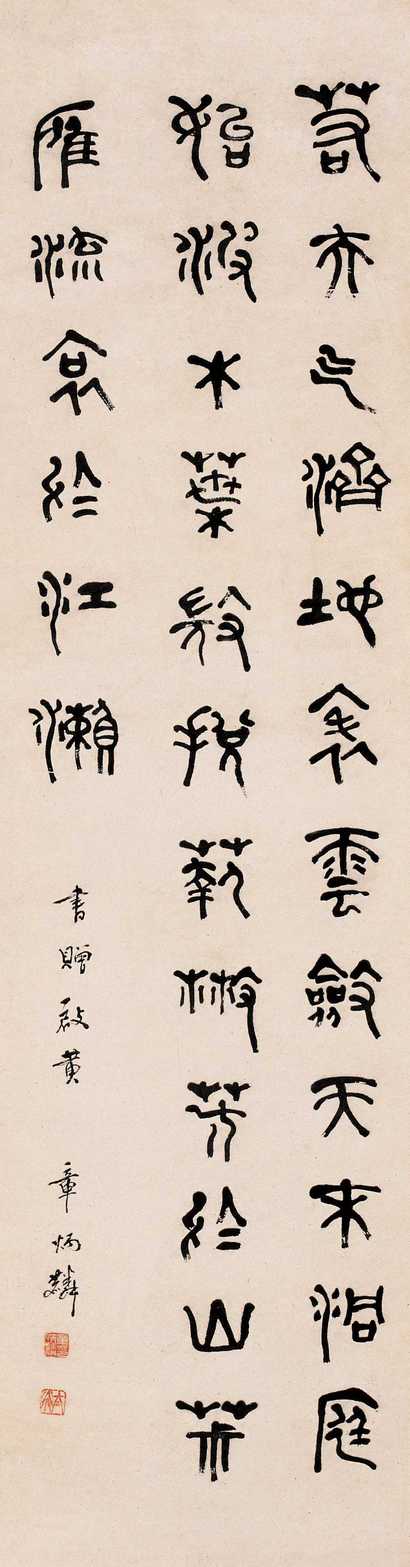 若夫气濟地表雲斂天末洞庭
始波木葉𢼸捝蘜㪔芳於山茮
雁流哀於江瀨
書贈啟黃 章炳麟